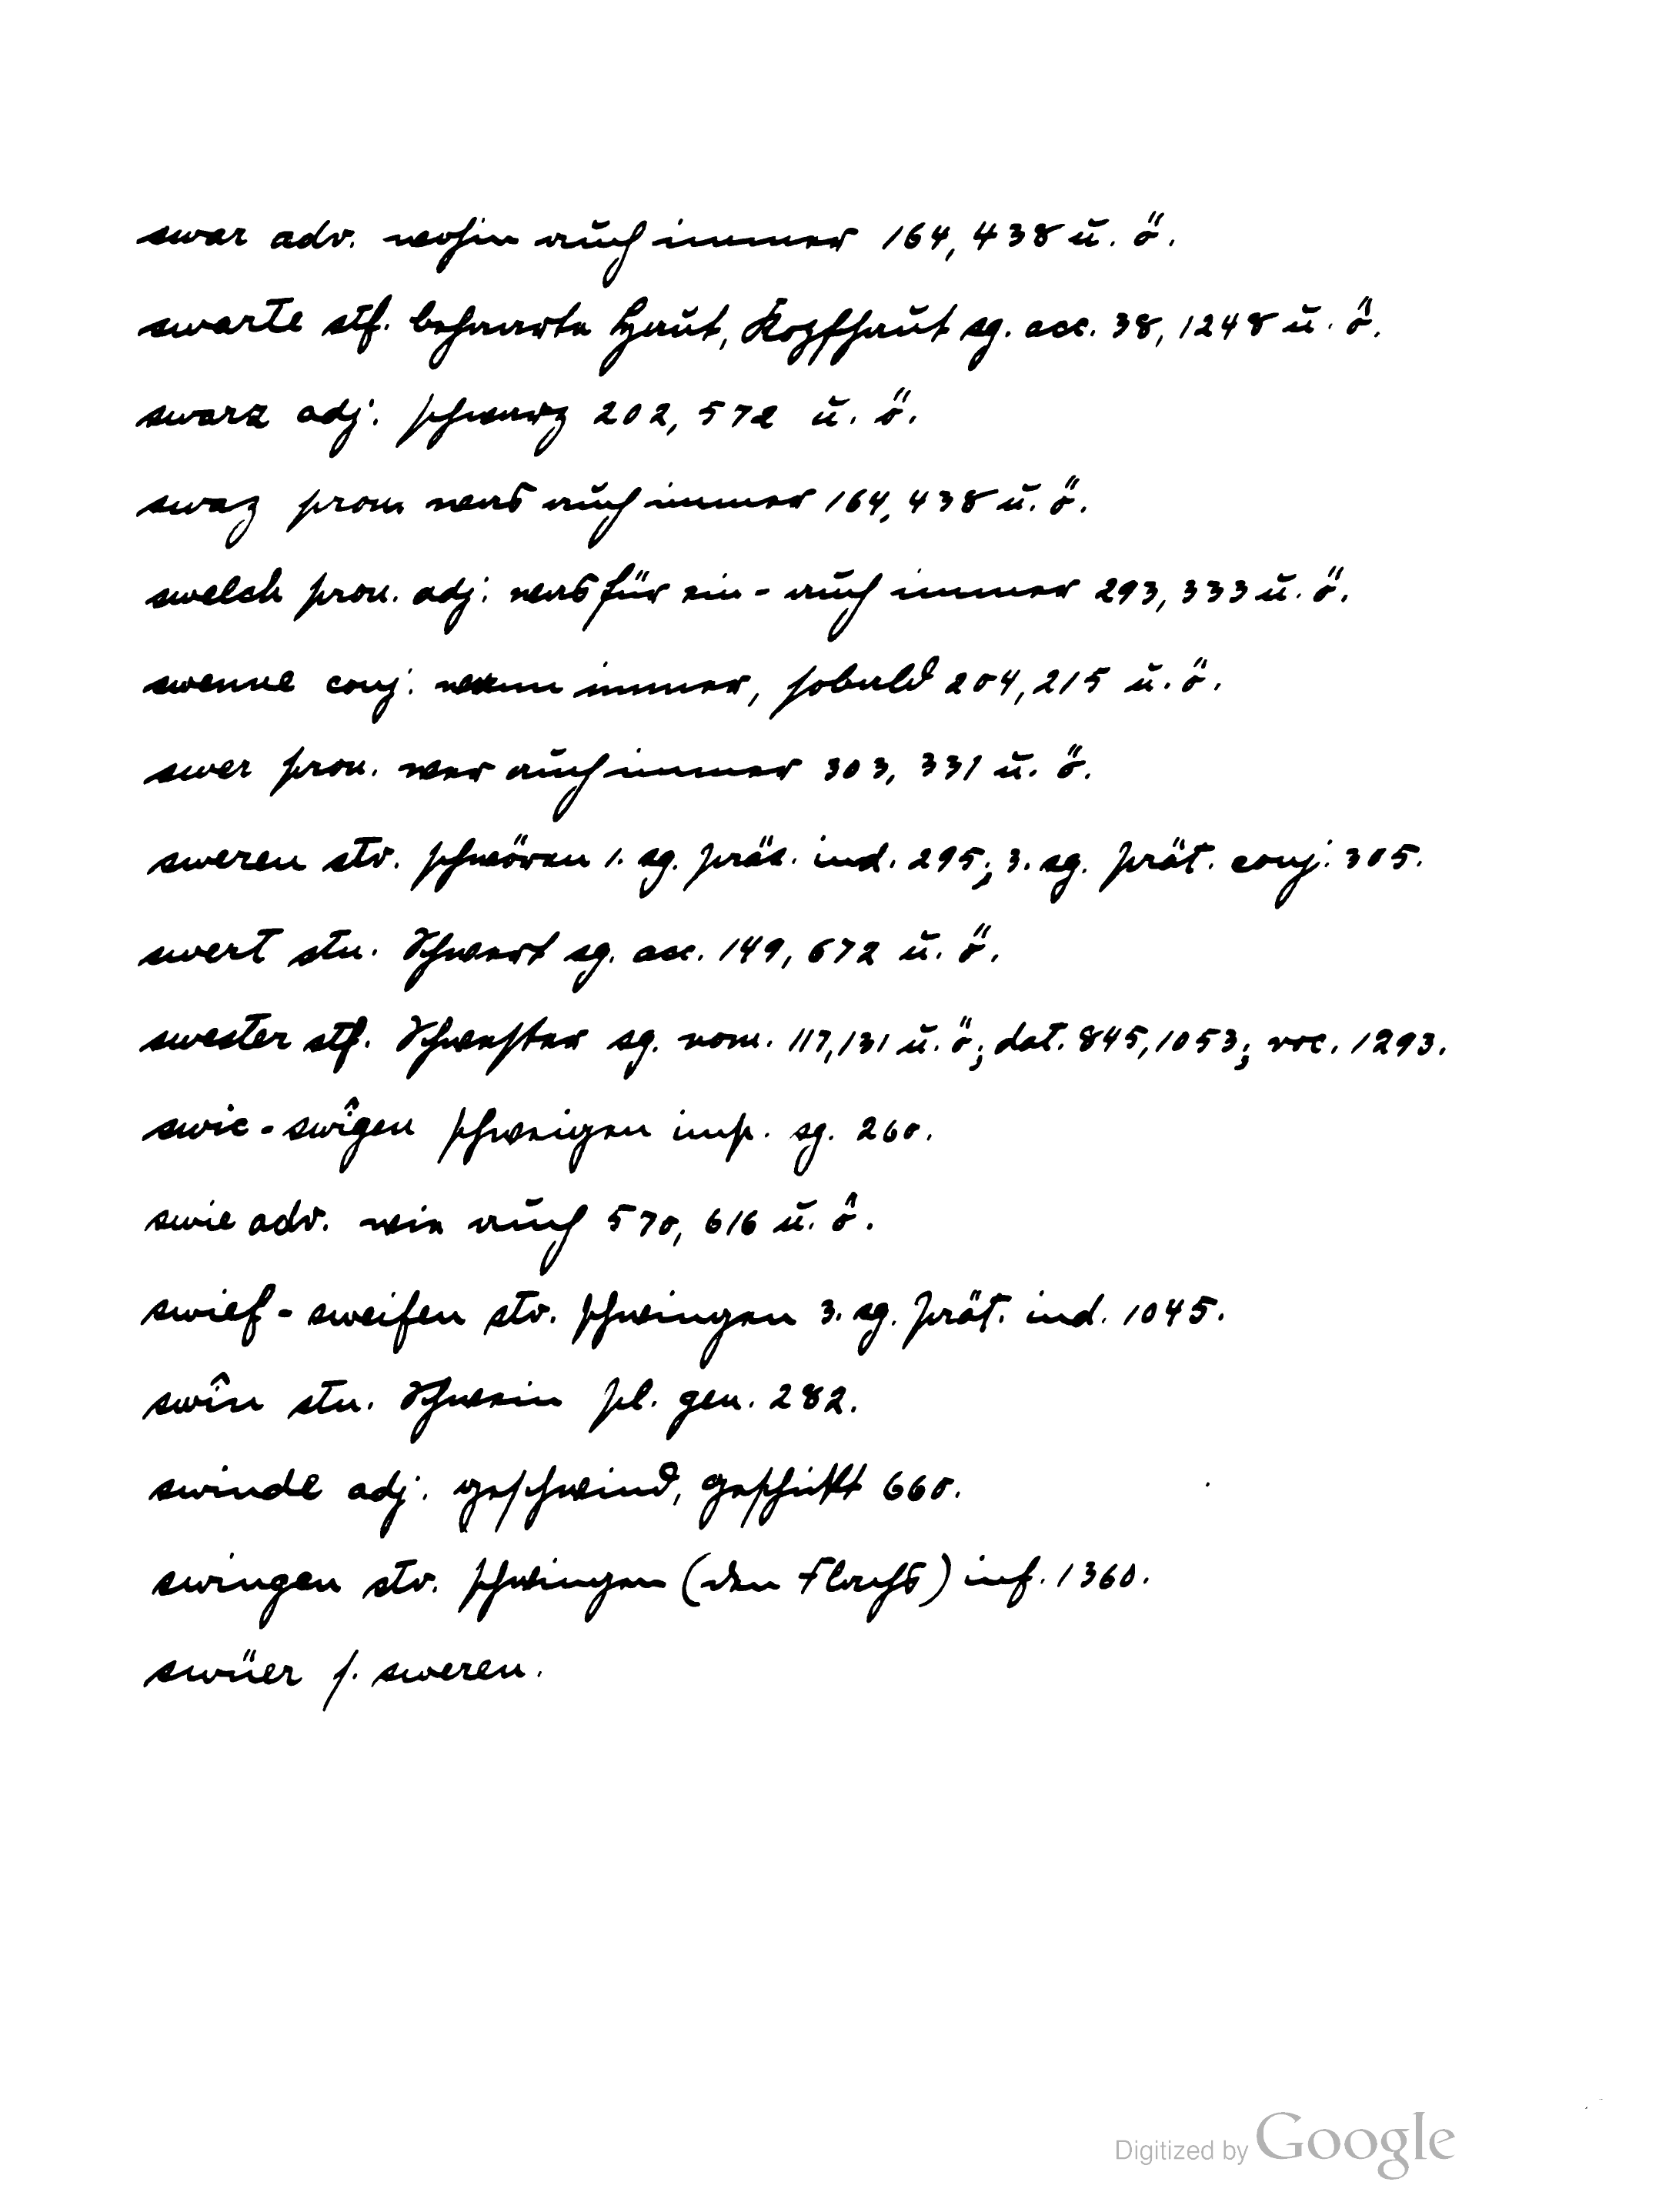 swar adv. wohin auch immer 164, 438 u. ö.
swarte stf. behaarte Haut, Kopfhaut sg. acc. 38, 1248 u. ö.
swarz adj. schwarz 202, 572 u. ö.
swaz pron was auch immer 164, 438 u. ö.
swelch pron. adj. was für ein - auch immer 293, 333 u. ö.
swenne conj. wenn immer, sobald 204, 215 u. ö.
swer pron. wer auch immer 303, 331 u. ö.
sweren stv. schwören 1. sg. präs. ind. 295; 3. sg. prät. conj. 305.
swert stn. Schwert sg. acc. 149, 672 u. ö.
swester stf. Schwester sg. nom. 117, 131 u. ö; dat. 845, 1053; voc. 1293.
swic - swîgen schweigen imp. sg. 260.
swie adv. wie auch 570, 616 u. ö.
swief - sweifen stv. schwingen 3. sg. prät. ind. 1045.
swîn stn. Schwein pl. gen. 282.
swinde adj. geschwind, geschickt 660.
swingen stv. schwingen (den Flachs) inf. 1360.
swüer s. sweren.
Digitized by Google